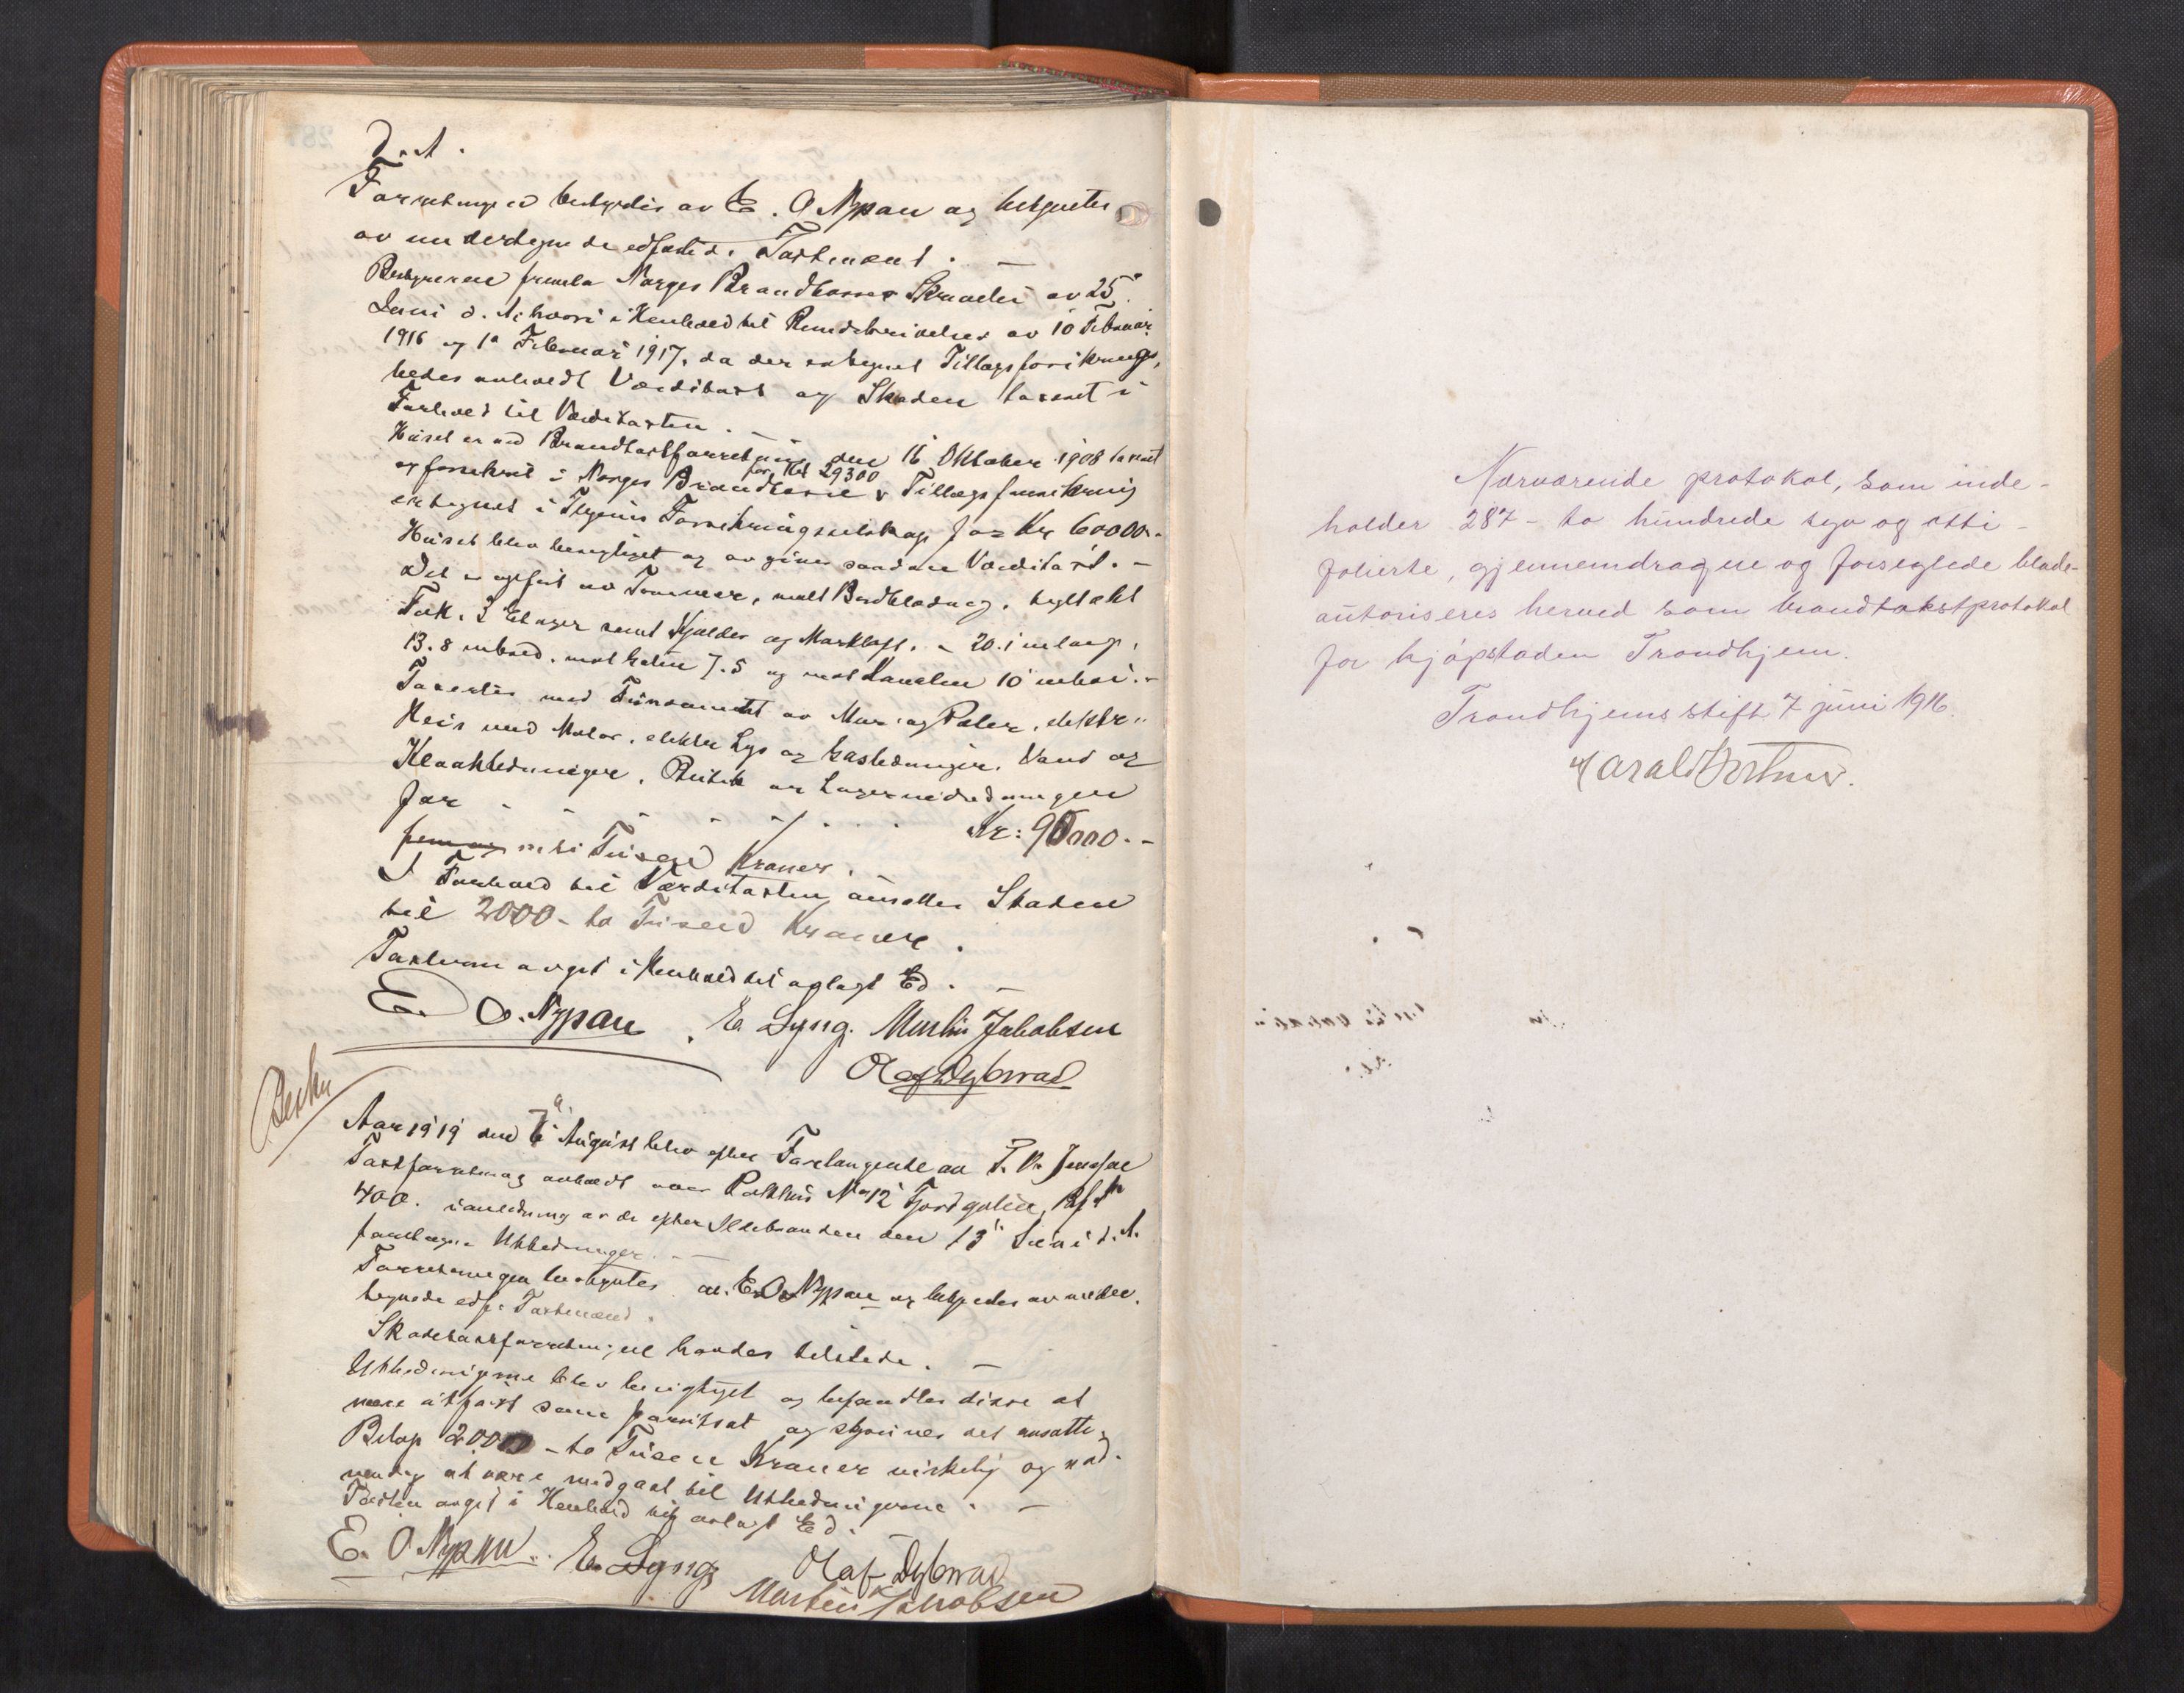 d. A.
Forretningen bestyrdes av E. O Nypan og betjentes
av undertegnede edfæstede Taxtmænd. —
Bestyreren fremla Norges Brandkasses Skrivelse av 25
Juni d. A. hvori i Henhold til Rundskrivelser av 10 Februar
1916 og 1ª Februar 1917, da der er tegnet Tillægsforsikring,
bedes avholdt Værditaxt og Skaden taxeret i
Forhold til Værditaxten. —
Huset er ved Brandtaxtforretning den 16 Oktober 1908 taxeret
for Kr 29300
og forsikret i Norges Brandkasse & Tillægsforsikring
er tegnet i Skjens Forsikringsselskap for Kr 60000.-
Huset blev besigtiget og avgives saadan Værditaxt. -
Det er opført av Tømmer, malt Bordklædning, teglhæld
Tak. 3 Etager samt Kjælder og Mørkloft. - 20.1 m lang,
13.8 m bred. mot Gaten 7.5 og mot Kanalen 10 m høi. -
Taxeres med Fundament av Mur og Pæler, elektr.
Heis med Motor, elektr Lys og Gasledninger. Vand og
Kloakledninger. Butik og Lagerindredninger
for - - - - - Kr: 90000.-
fem og nitti Tusend Kroner.
I Forhold til Værditaxten ansættes Skaden
til 2000 - to Tusend Kroner.
Taxten avgit i Henhold til avlagt Ed. —
E. O. Nypan . E. Lyng. Martin Jakobsen
Olaf Dybwad
Aar 1919 den 7ª August blev efter Forlangende av
Taxtforretning avholdt over Pakhus No 12 Fjordgaten,
400. i anledning av de efter Ildebranden den 13" Juni d. A.
foretagne Utbedringer. —
Forretningen bestyrtes av E. O. Nypan og betjentes av under-
tegnede edf. Taxtmænd.
Skadetaxtforretningen havdes tilstede. —
Utbedringerne blev besigtiget og befandtes disse at
være utført som forutsat og skjønnes det ansatte
Beløp 2000 - to Tusen Kroner virkelig og nød-
vendig at være medgaat til Utbedringerne. —
Taxten avgit i Henhold til avlagt Ed.
E. O. Nypan . E. Lyng Olaf Dybwad
Martin Jakobsen
Nærværende protokol, som inde-
holder 287 - to hundrede syv og otti -
folierte, gjennemdragne og forseglede blade-
autoriseres herved som brandtakstprotokol
for kjøpstaden Trondhjem.
Trondhjems stift 7 juni 1916.
Harald Bothner.